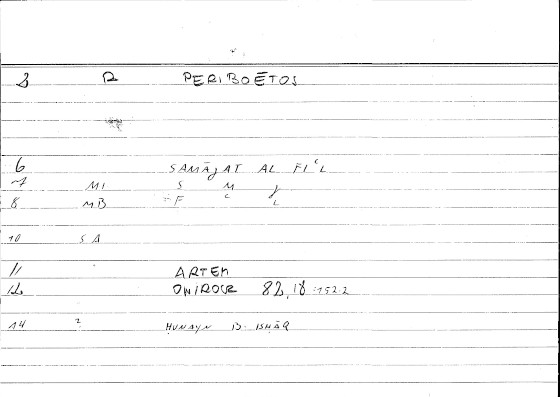 3 R PERIBOĒTOS
6 SAMĀJAT AL FI'L
7 MI S M J
8 MB =F ʿ L
10 SA
11 ARTEM
12 ONIROCR 82,18 :152.2
14 ? ḤUNAYN B. ISḤĀQ